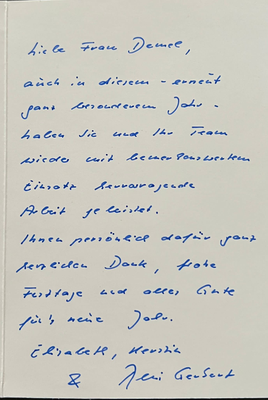 Liebe Frau Demel,
auch in diesem - erneut
ganz besonderem Jahr -
haben Sie und Ihr Team
wieder mit bemerkenswertem
Einsatz hervorragende
Arbeit geleistet.
Ihnen persönlich dafür ganz
herzlichen Dank, frohe
Festtage und alles Gute
für's neue Jahr.
Elisabeth,
&